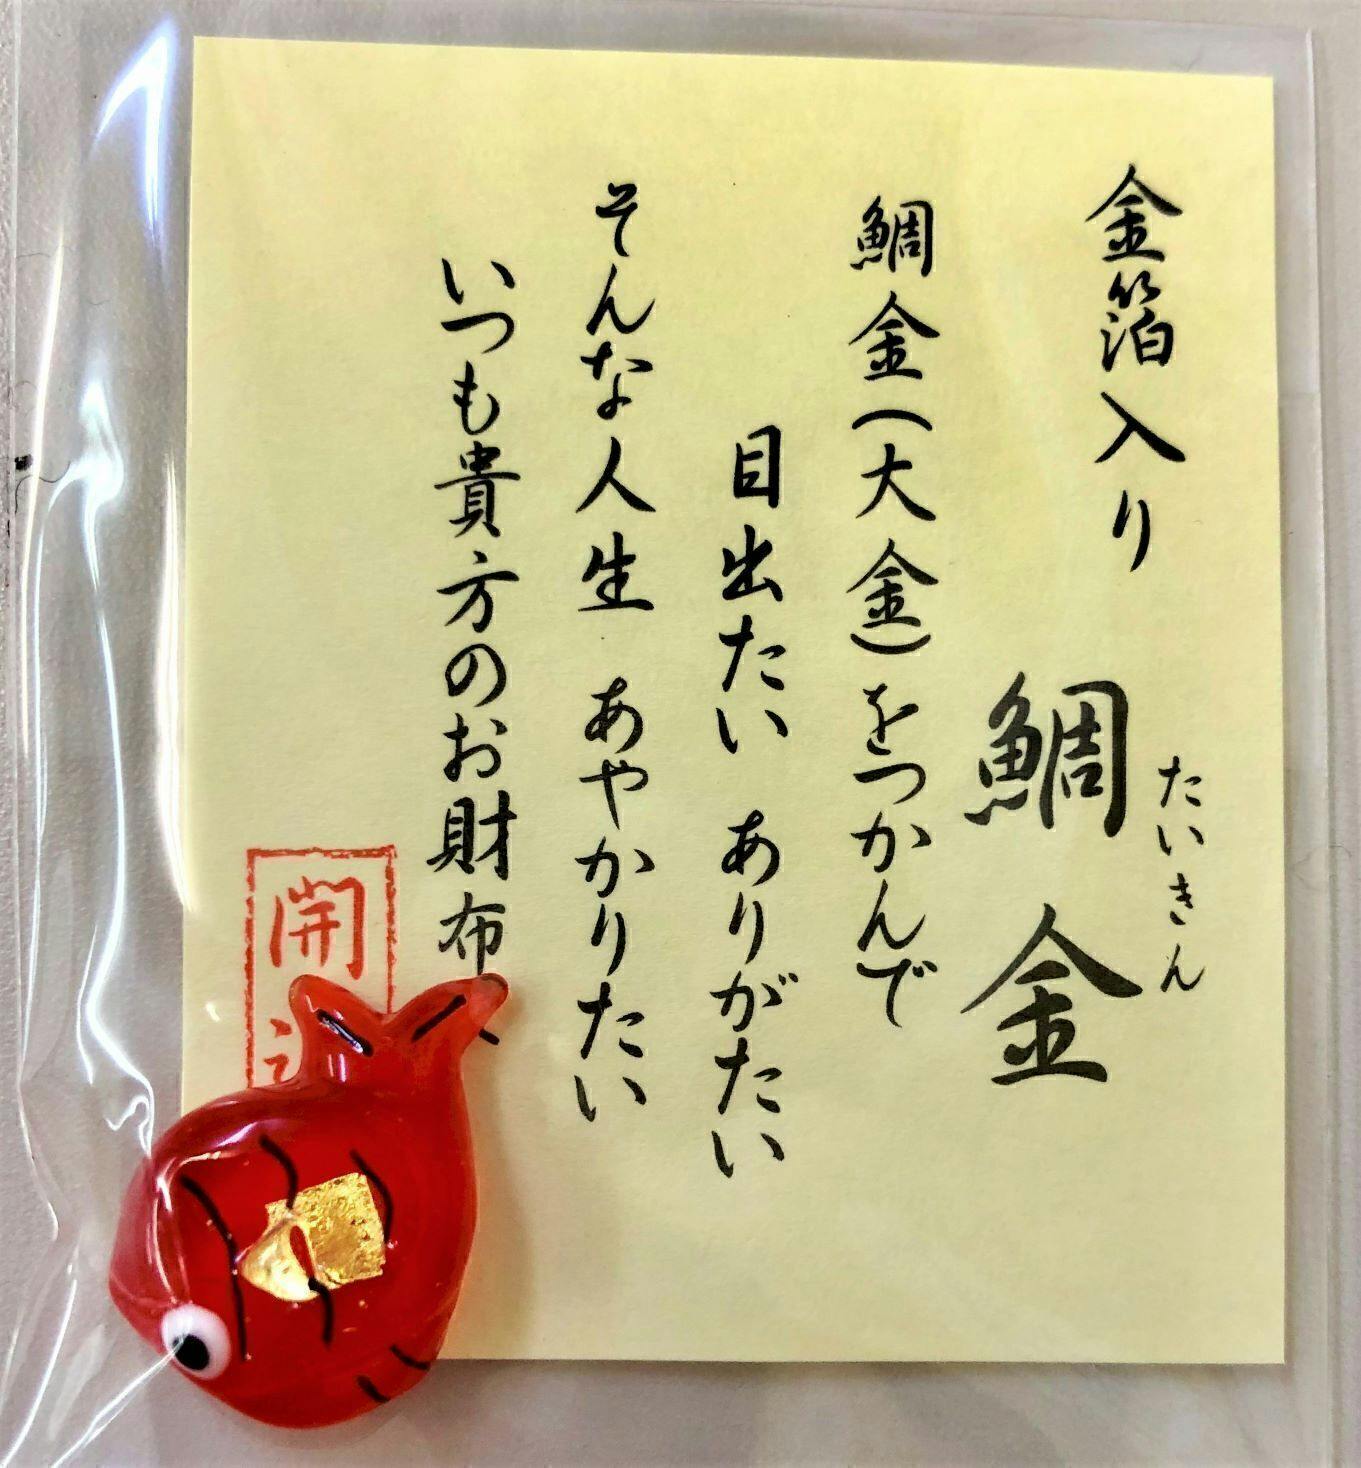 金箔入り
たいきん
鯛金
鯛金(大金)をつかんで
目出たい ありがたい
そんな人生 あやかりたい
いつも貴方のお財布
開